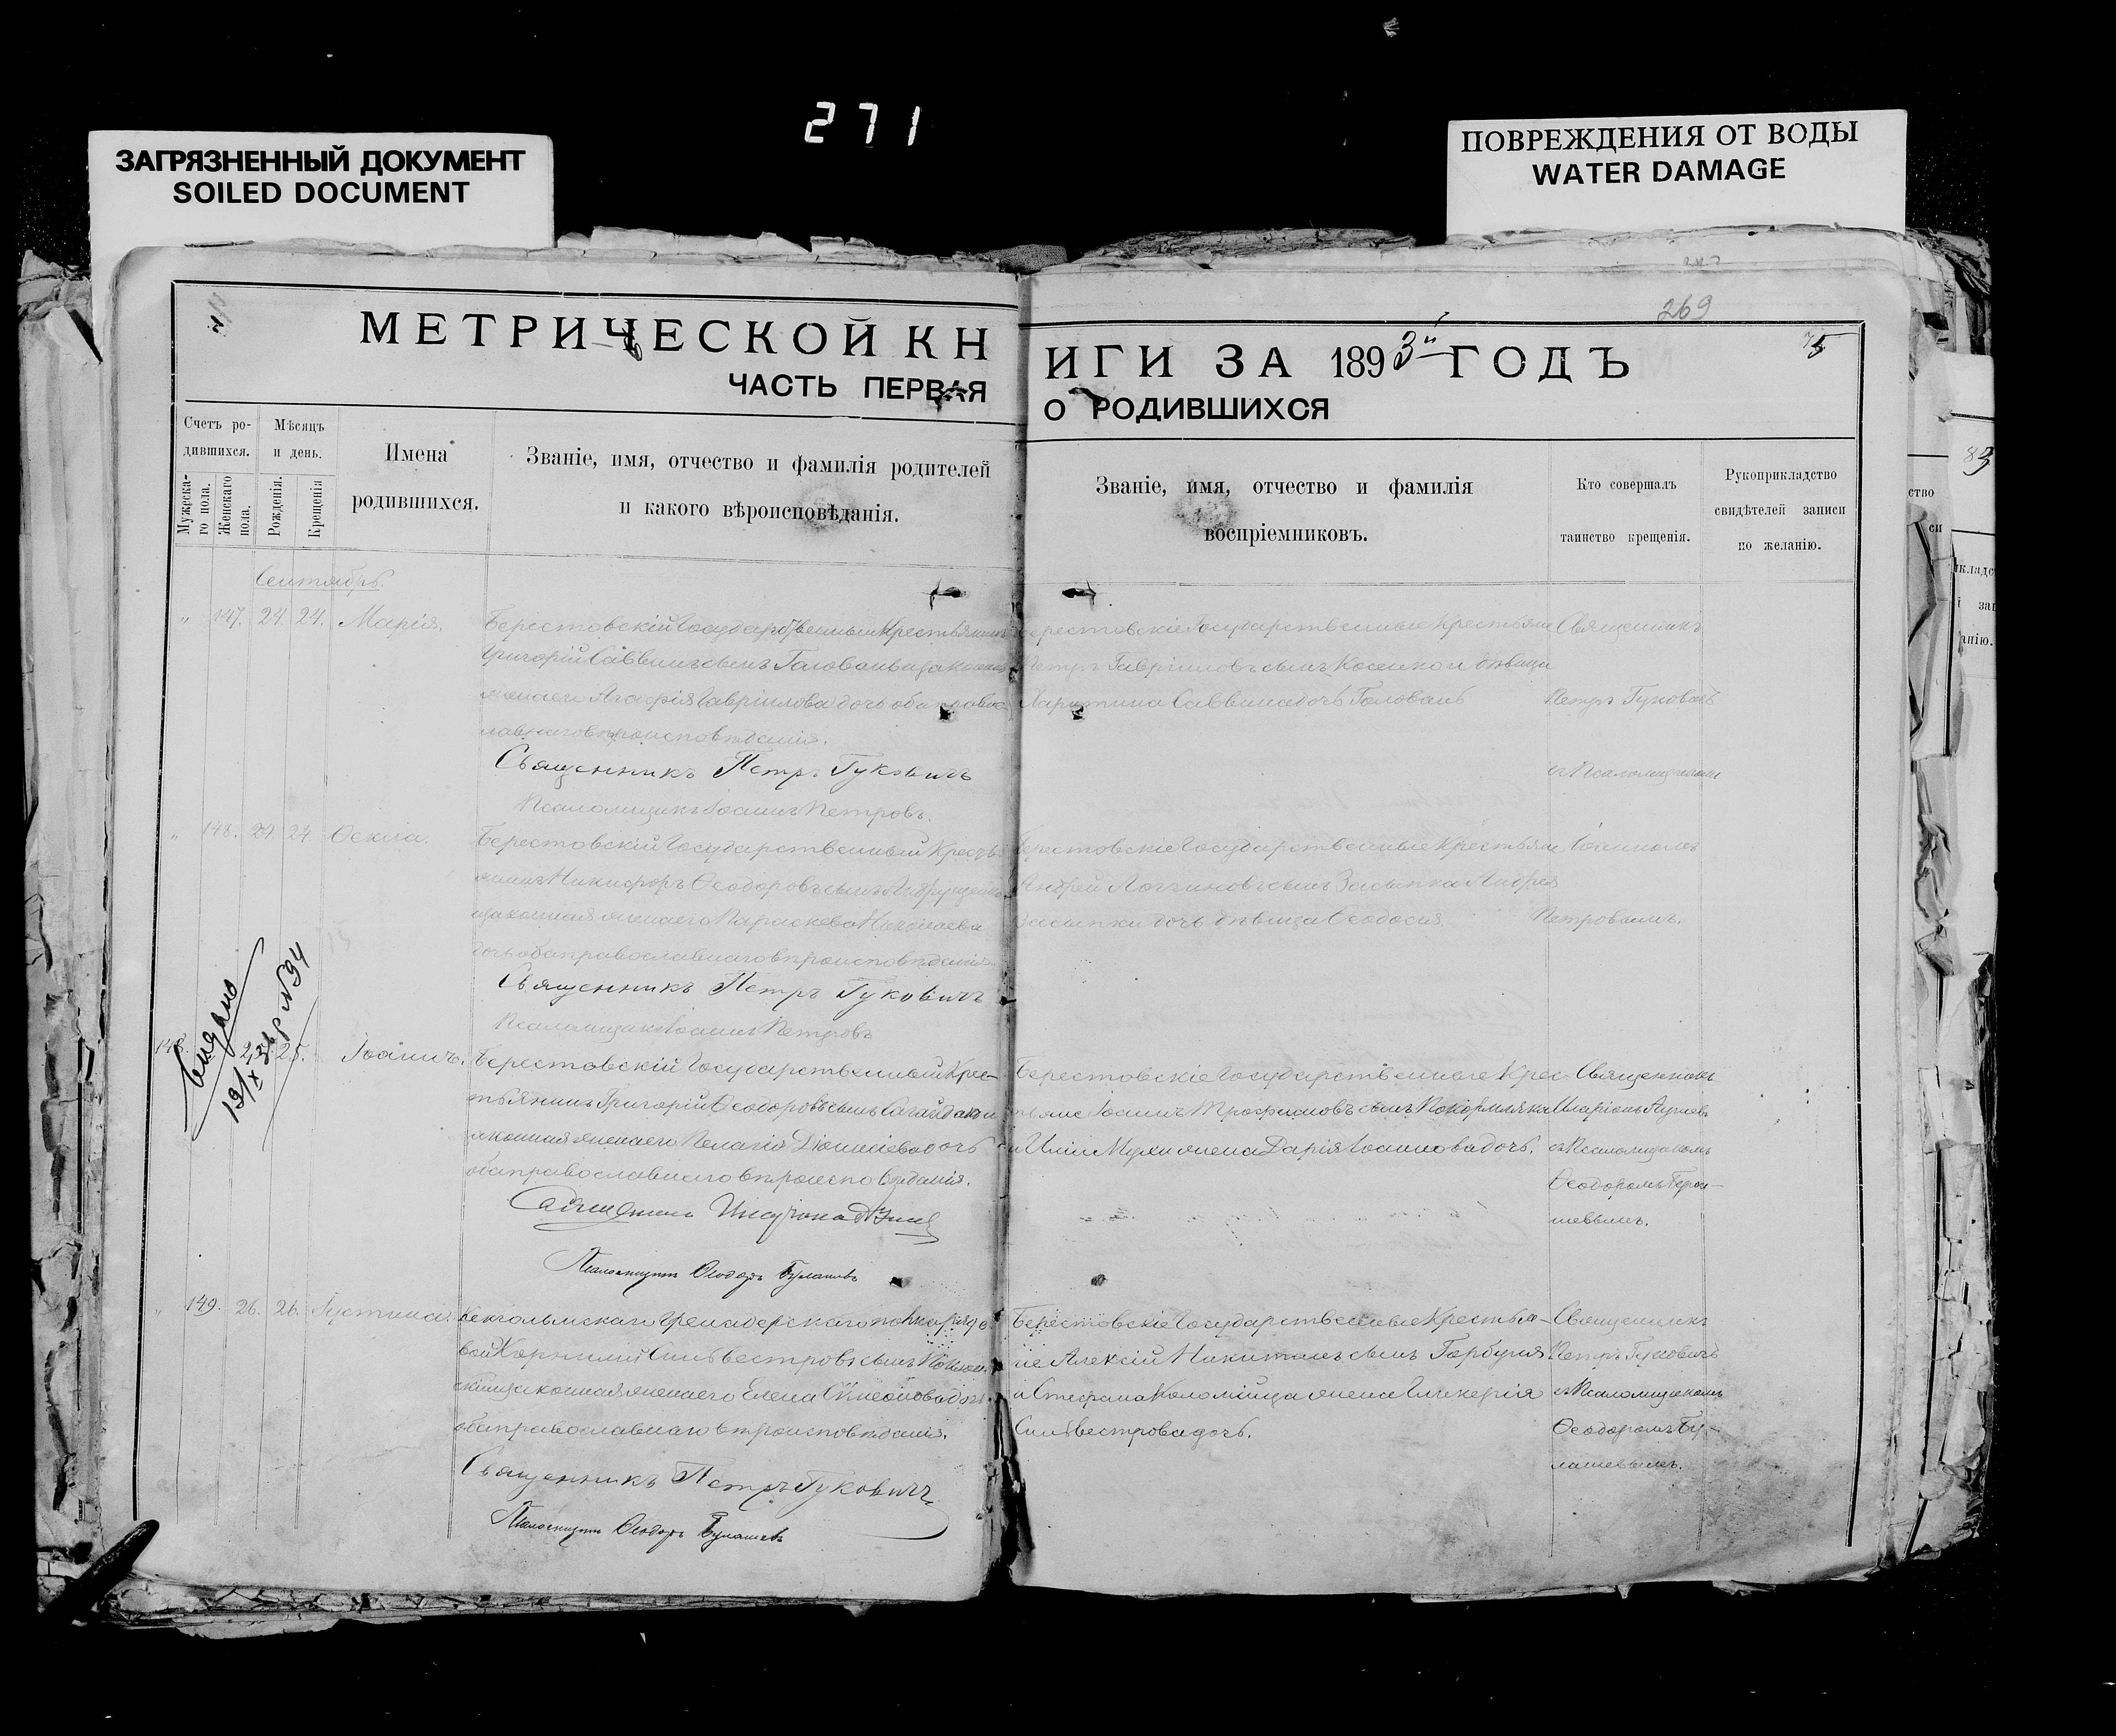 271
ЗАГРЯЗНЕННЫЙ ДОКУМЕНТ
SOILED DOCUMENT
ПОВРЕЖДЕНИЯ ОТ ВОДЫ
WATER DAMAGE
269
75
МЕТРИЧЕСКОЙ КН
ИГИ ЗА 1893й ГОДЪ
ЧАСТЬ ПЕРВАЯ
О РОДИВШИХСЯ
Счетъ ро-
дившихся.
Мужеска-
го пола.
Женскаго
пола.
Мѣсяцъ
и день.
Рожденія.
Крещенія
Имена
родившихся.
Званіе, имя, отчество и фамилія родителей
и какого вѣроисповѣданія.
Званіе, имя, отчество и фамилія
воспріемниковъ.
Кто совершалъ
таинство крещенія.
Рукоприкладство
свидѣтелей записи
по желанію.
Сентябрь.
" 147. 24. 24. Марія.
Берестовскій Государственный Крестьянинъ
Григорій Саввинъ сынъ Голованъ и законная
жена его Агафія Гавріилова дочь оба правос
лавнаго вѣроисповѣданія.
Священникъ Петръ Гуковичъ
Псаломщикъ Іоаннъ Петровъ.
Берестовскіе Государственные Крестьяне
Петръ Гавріиловъ сынъ Косенко и дѣвица
Харитина Саввина дочь Голованъ
Священникъ
Петръ Гуковичъ
съ Псаломщикомъ
Іоанномъ
Петровымъ.
" 148. 24. 24 Ѳекла.
Берестовскій Государственный Кресть
янинъ Никифоръ Ѳеодоровъ сынъ
и законная жена его Параскева Николаева
дочь оба православнаго вѣроисповѣданія.
Священникъ Петръ Гуковичъ
Псаломщикъ Іоаннъ Петровъ
Берестовскіе Государственные Крестьяне
Андрей Логгиновъ сынъ Засыпка и Андрея
Засыпки дочь дѣвица Ѳеодосія.
Выдано
148. 25. Іоаннъ.
Берестовскій Государственный Крес-
тьянинъ Григорій Ѳеодоровъ сынъ Сагайдакъ и
законная жена его Пелагія Діонисіева дочь
оба православнаго вѣроисповѣданія.
Псаломщикъ Ѳеодоръ Булашевъ
Берестовскіе Государственные Крес-
тьяне Іоаннъ Трофимовъ сынъ Покормляка
и Иліи Мухи жена Дарія Іоаннова дочь.
Священникъ
съ Псаломщикомъ
Ѳеодоромъ
" 149. 26. 26. Іустина.
Кексгольмскаго Гренадерскаго полка рядо
вой Корнилій Сильвестровъ сынъ
законная жена его Елена Симеонова дочь
оба православнаго вѣроисповѣданія.
Священникъ Петръ Гуковичъ
Псаломщикъ Ѳеодоръ Булашевъ
Берестовскіе Государственные Крестья-
не Алексій Никитинъ сынъ Горбуля
и Стефана Коломійца жена Гликерія
Сильвестрова дочь.
Священникъ
Петръ Гуковичъ
съ Псаломщикомъ
Ѳеодоромъ Бу-
лашевымъ.